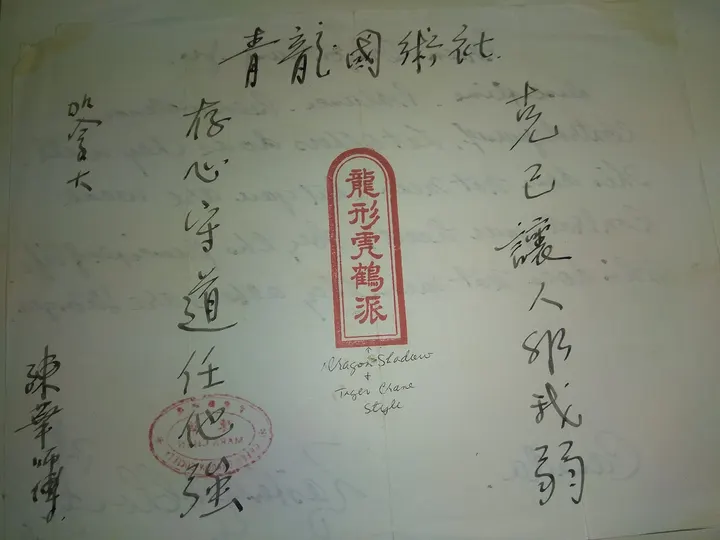 青龍國術社
克己讓人非我弱
龍形虎鶴派
Dragon Shadow
+
Tiger Crane
Style
存心守道任他強
加拿大
陳華師傅